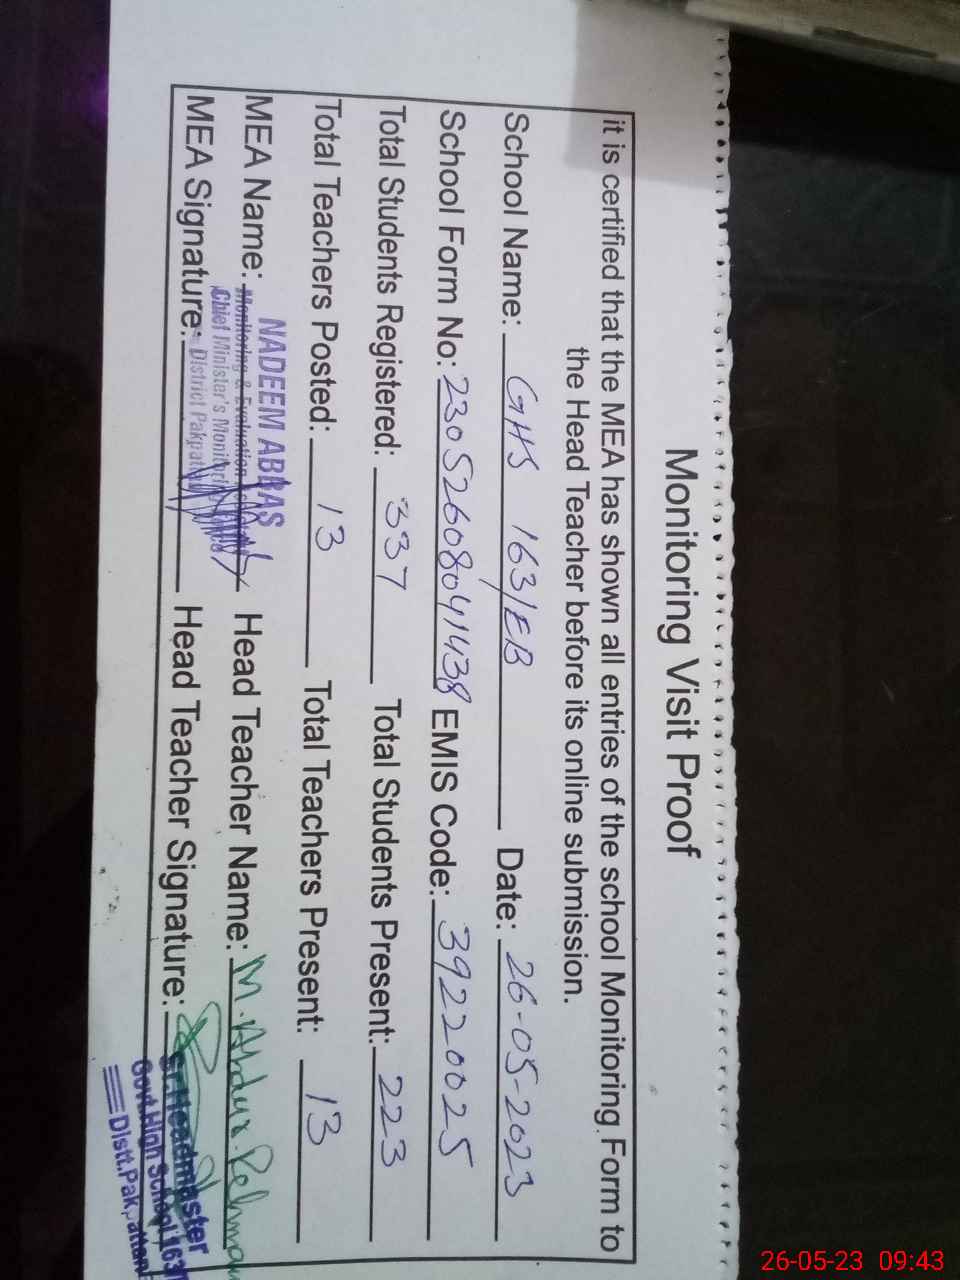 Monitoring Visit Proof
it is certified that the MEA has shown all entries of the school Monitoring Form to
the Head Teacher before its online submission.
School Name: GHS 163/EB Date: 26-05-2023
School Form No: 23052608041438 EMIS Code: 39220025
Total Students Registered: 337 Total Students Present: 223
Total Teachers Posted: 13 Total Teachers Present: 13
NADEEM ABBAS
MEA Name: Monitoring & Evaluation Head Teacher Name: M. Abdur Rehman
Chief Minister's Monitoring
MEA Signature: District Pakpattan Head Teacher Signature:
Sr. Headmaster
Govt. High School 163
Distt. Pakpattan
26-05-23 09:43